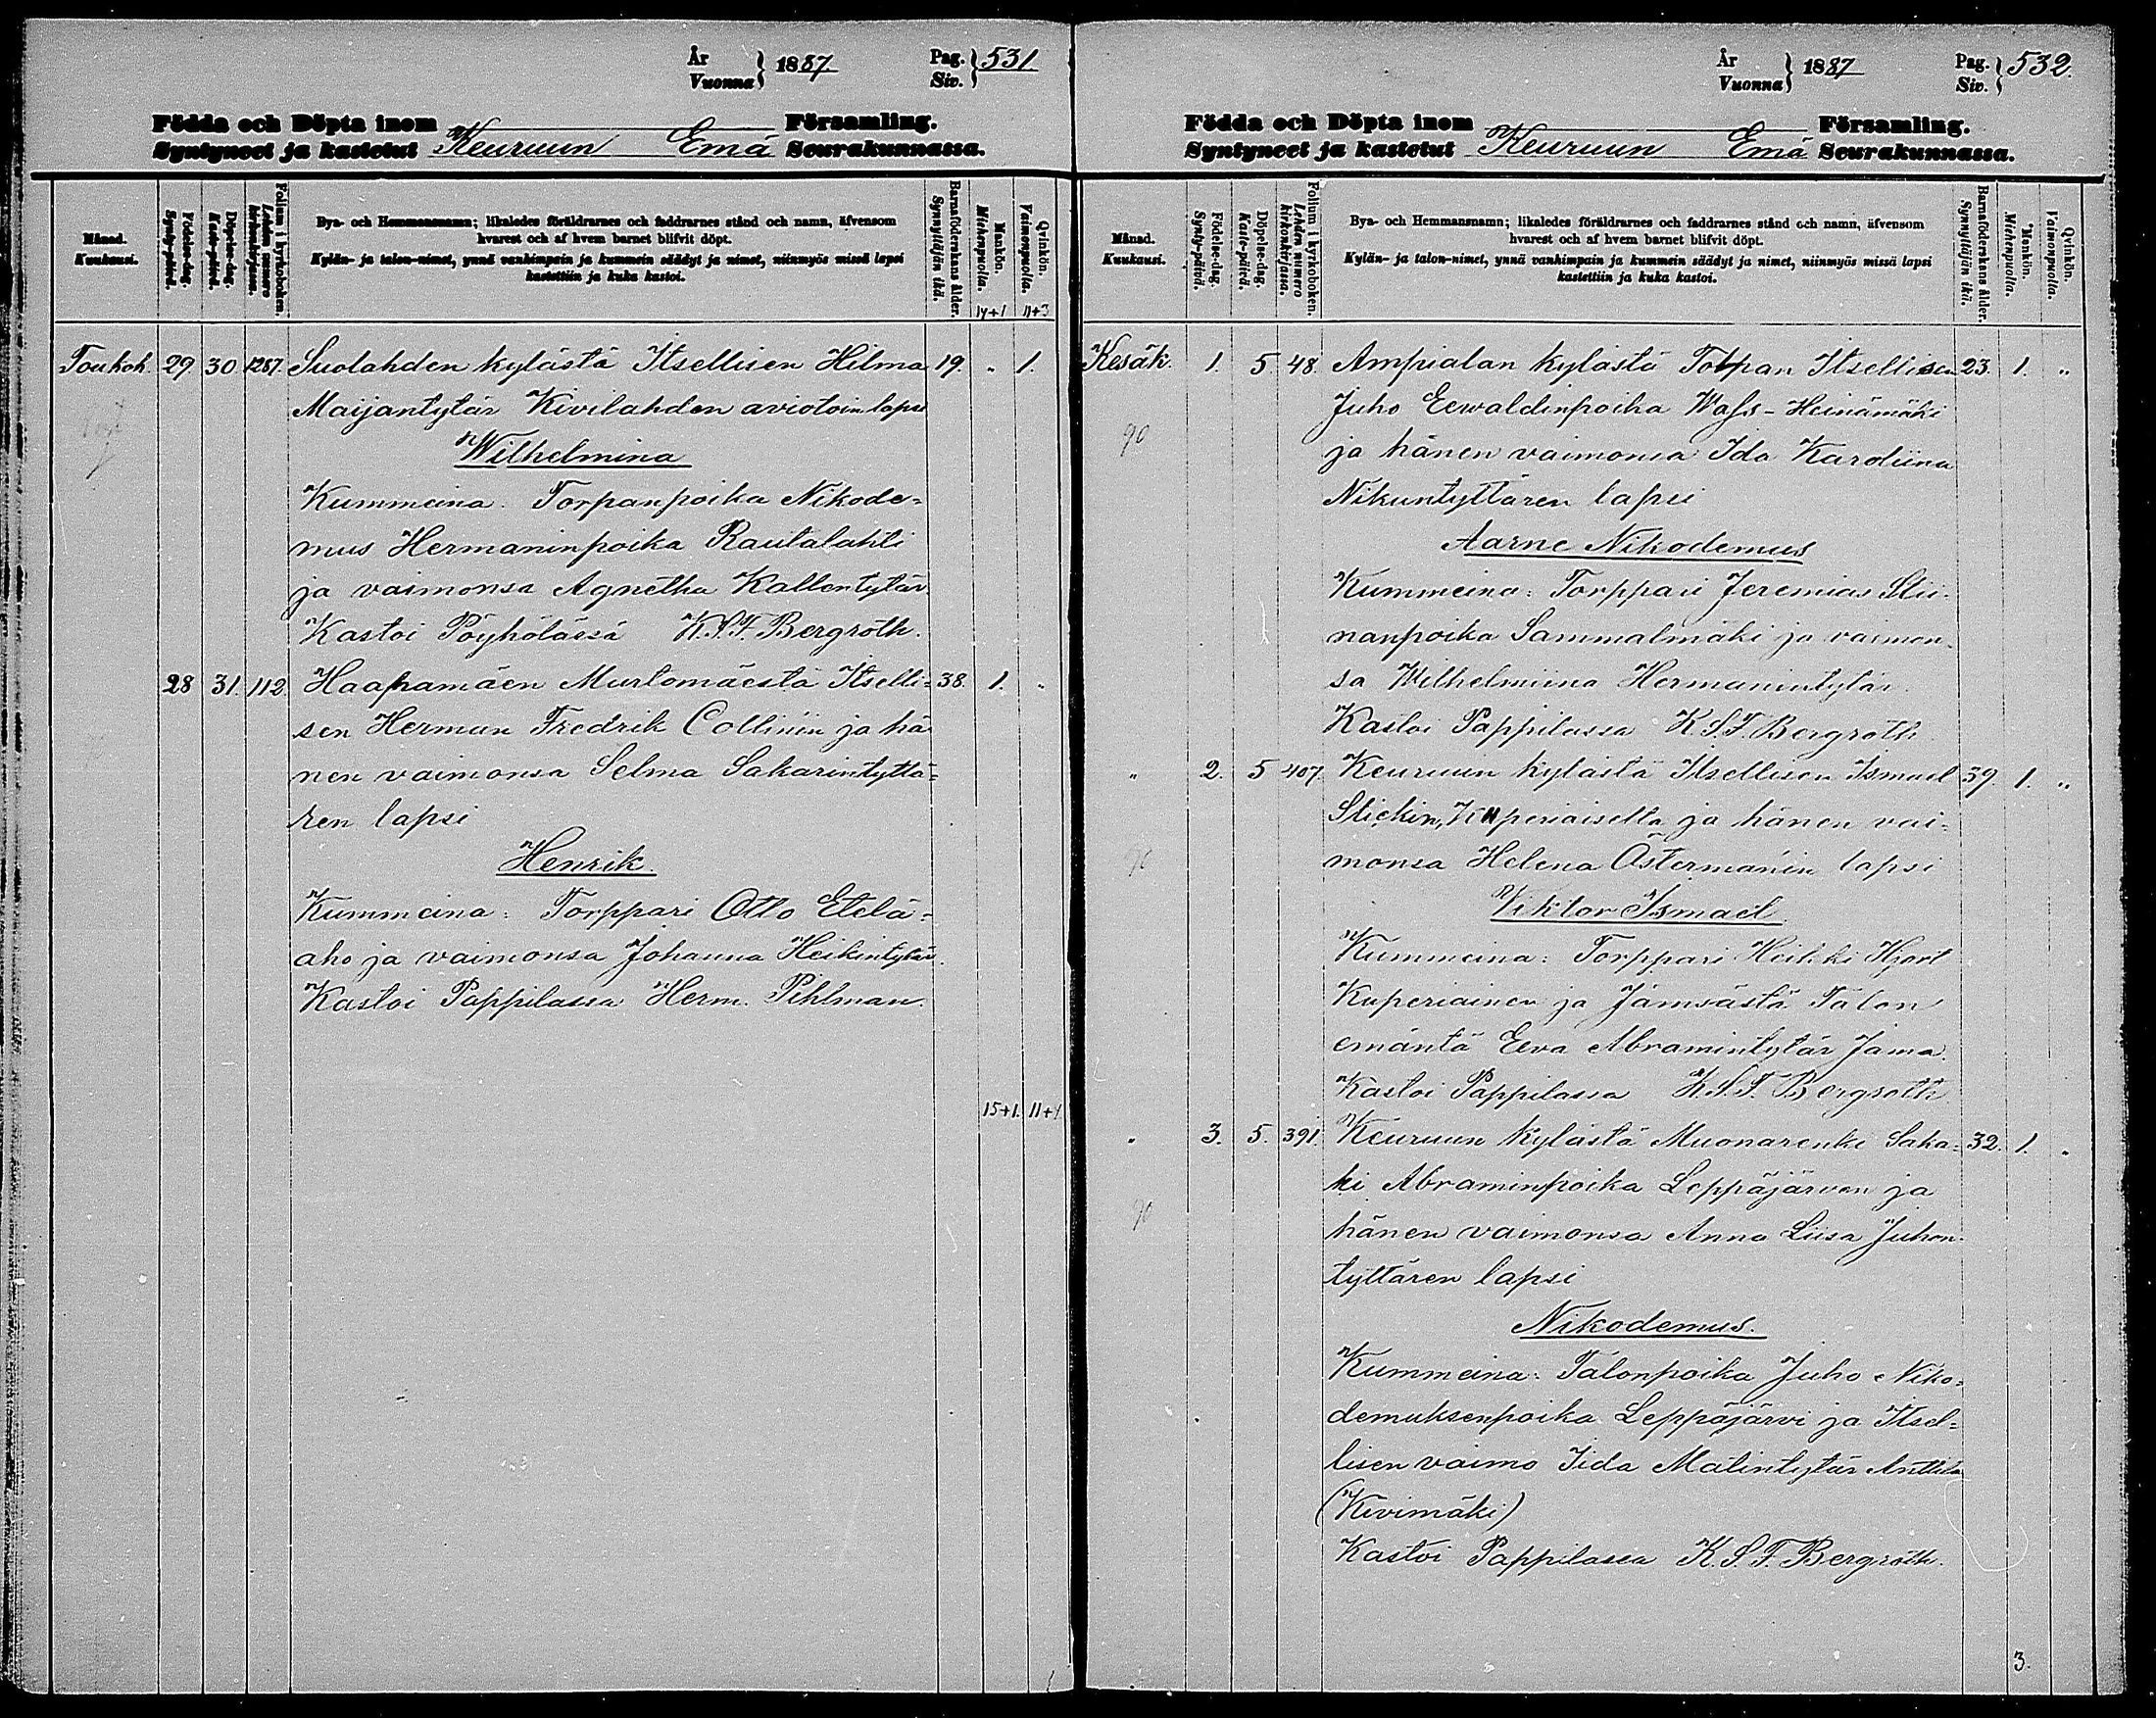 År
Vuonna } 1887
Pag.
Siv. } 531
Födda och Döpta inom Församling.
Syntyneet ja kastetut Keuruun Emä Seurakunnassa.
Månad.
Kuukausi.
Födelse-dag.
Synty-päivä.
Döpelse-dag.
Kaste-päivä.
Folium i kyrkoboken.
Lehden numero
kirkonkirjassa.
Bya- och Hemmansnamn; likaledes föräldrarnes och faddrarnes stånd och namn, äfvensom
hvarest och af hvem barnet blifvit döpt.
Kylän- ja talon-nimet, ynnä vanhimpain ja kummein säädyt ja nimet, niinmyös missä lapsi
kastettiin ja kuka kastoi.
Barnaföderskans ålder.
Synnyttäjän ikä.
Mankön.
Miehenpuolla.
Qvinkön.
Vaimonpuolla.
14+1 11+3
Toukok. 29 30 1287. Suolahden kylästä Itsellisen Hilma 19. " 1.
Maijantytär Kivilahden aviotoin lapsi
Wilhelmina
Kummeina. Torpanpoika Nikode=
mus Hermaninpoika Rautalahti
ja vaimonsa Agnetha Kallentytär
Kastoi Pöyhölässä K.S.F. Bergroth.
28 31. 112 Haapamäen Murtomäestä Itselli= 38. 1. "
sen Herman Fredrik Collinin ja hä
nen vaimonsa Selma Sakarintyttä=
ren lapsi
Henrik.
Kummeina: Torppari Otto Etelä=
aho ja vaimonsa Johanna Heikintytär.
Kastoi Pappilassa Herm. Pihlman.
15+1. 11+4
År
Vuonna } 1887
Pag.
Siv. } 532.
Födda och Döpta inom Församling.
Syntyneet ja kastetut Keuruun Emä Seurakunnassa.
Månad.
Kuukausi.
Födelse-dag.
Synty-päivä.
Döpelse-dag.
Kaste-päivä.
Folium i kyrkoboken.
Lehden numero
kirkonkirjassa.
Bya- och Hemmansnamn; likaledes föräldrarnes och faddrarnes stånd och namn, äfvensom
hvarest och af hvem barnet blifvit döpt.
Kylän- ja talon-nimet, ynnä vanhimpain ja kummein säädyt ja nimet, niinmyös missä lapsi
kastettiin ja kuka kastoi.
Barnaföderskans ålder.
Synnyttäjän ikä.
Mankön.
Miehenpuolla.
Qvinkön.
Vaimonpuolla.
Kesäk. 1. 5 48. Ampialan kylästä Itsellisen 23. 1. "
Juho Eewaldinpoika Wass-Heinämäki
90
ja hänen vaimonsa Ida Karoliina
Nikuntyttären lapsi
Aarne Nikodemus
Kummeina: Torppari Jeremias Stii
nanpoika Sammalmäki ja vaimon
sa Wilhelmiina Hermanintytär.
Kastoi Pappilassa K.S.F. Bergroth
" 2. 5 407. Keuruun kylästä Itsellisen Ismael 39. 1. "
Stickin, Kuperiaisella ja hänen vai=
90
monsa Helena Östermanin lapsi
Viktor Ismael.
Kummeina: Torppari Heikki Hjort
Kuperiainen ja Jämsästä Talon
emäntä Eeva Abramintytär Jama.
Kastoi Pappilassa K.S.F. Bergroth
" 3. 5. 391. Keuruun kylästä Muonarenki Saka= 32. 1. "
ki Abraminpoika Leppäjärven ja
90
hänen vaimonsa Anna Liisa Juhon
tyttären lapsi
Nikodemus.
Kummeina: Talonpoika Juho Niko=
demuksenpoika Leppäjärvi ja Itsel=
lisen vaimo Iida Matintytär Anttila
(Kivimäki)
Kastoi Pappilassa K.S.F. Bergroth.
3.